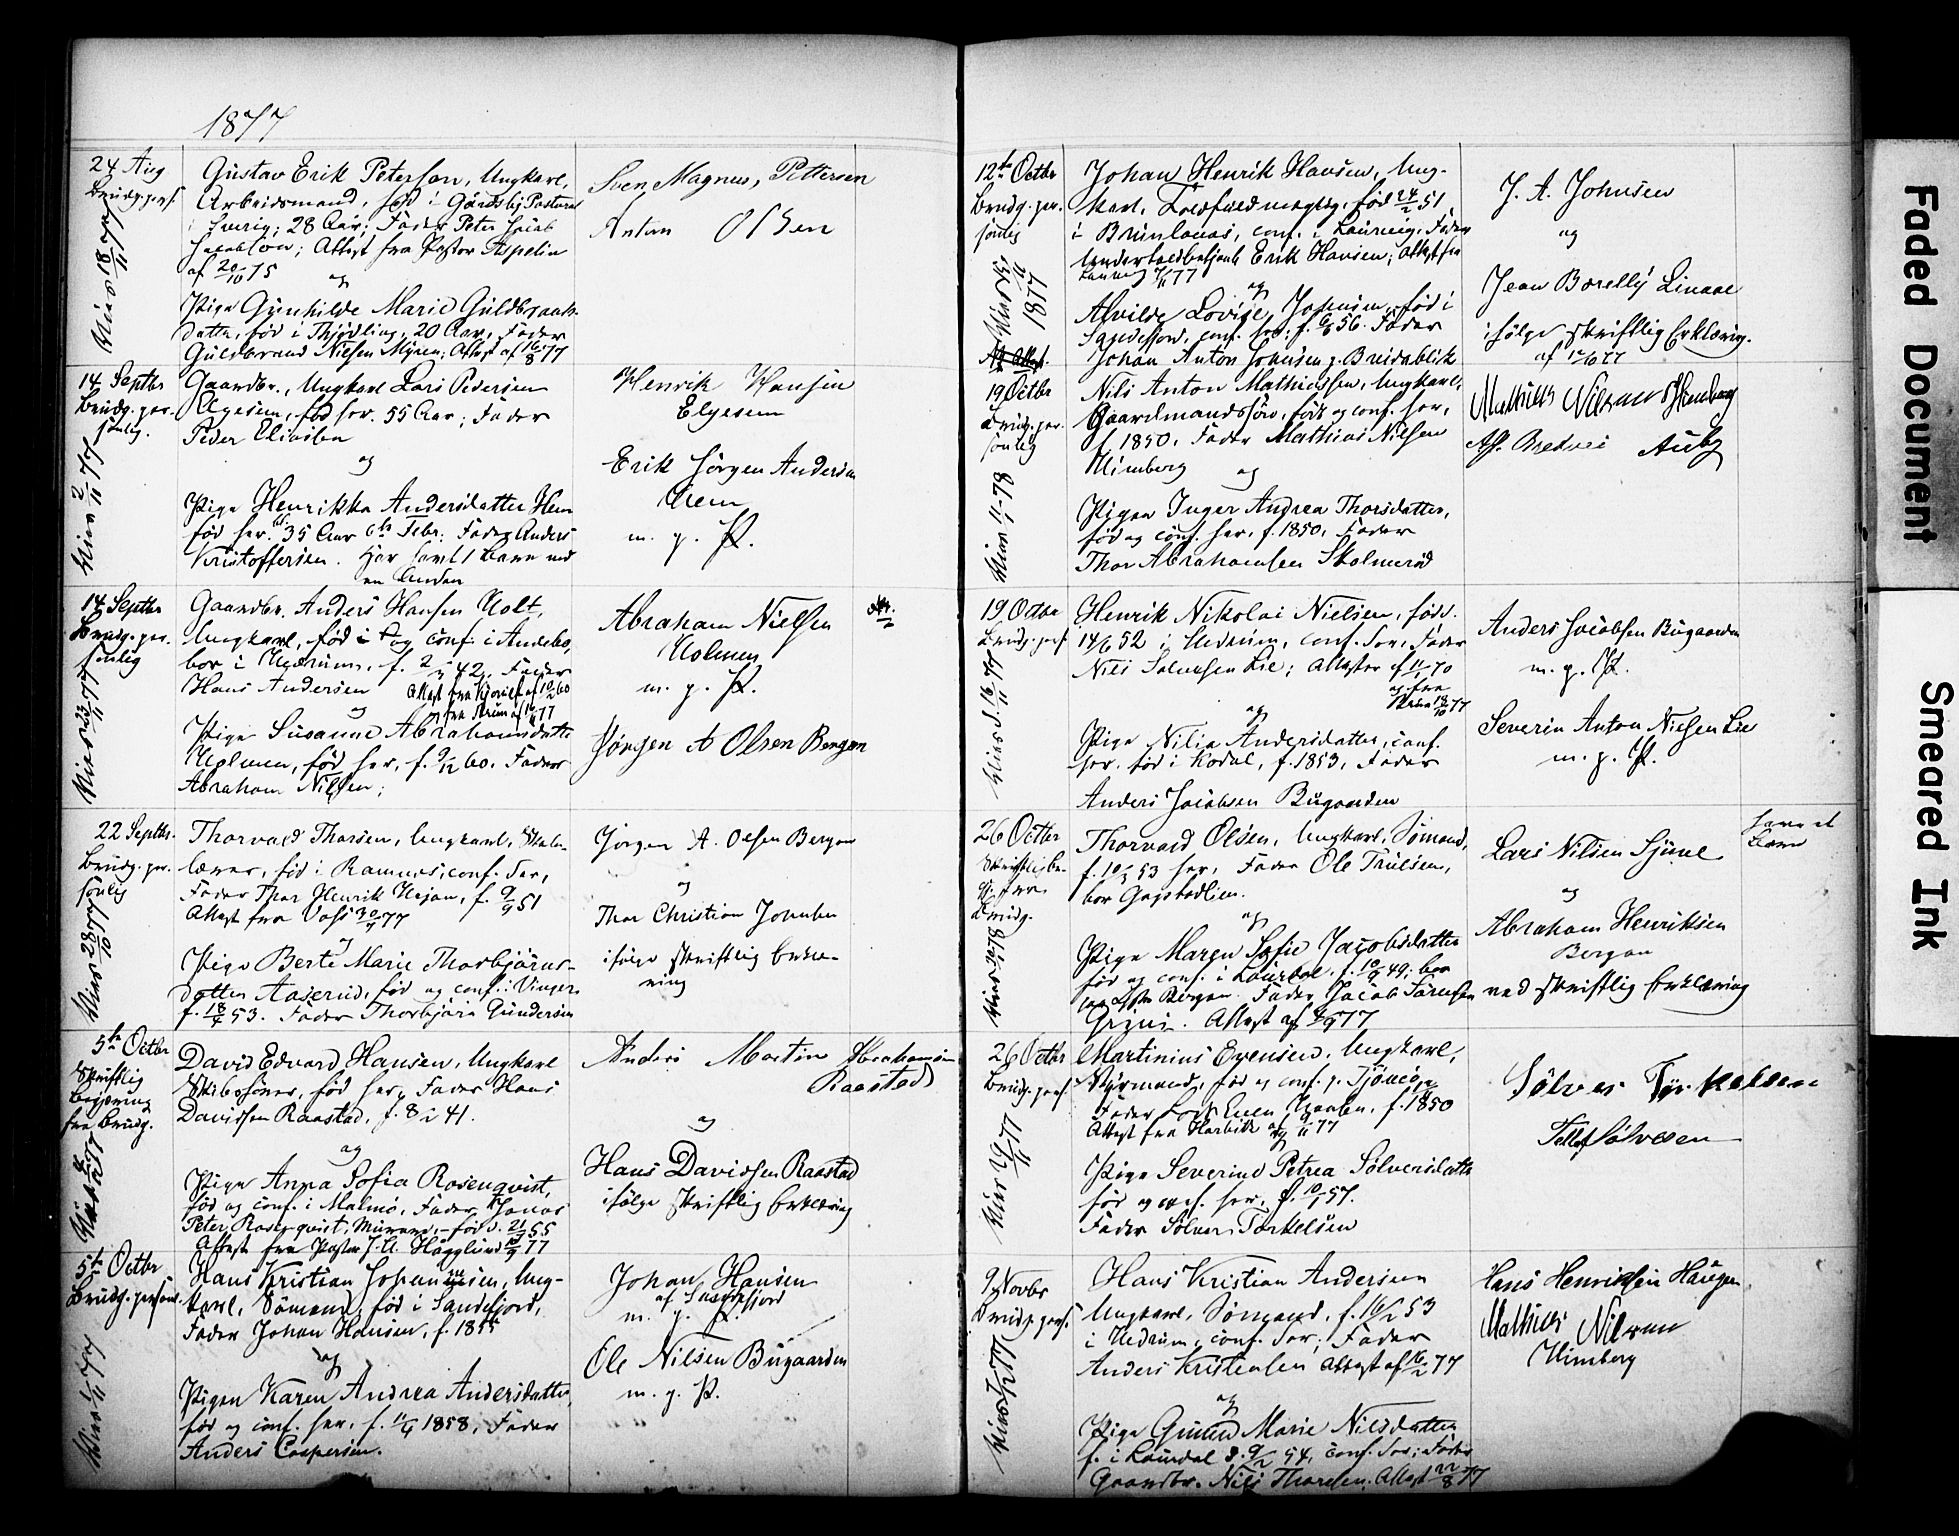 1877
24 Aug
Brudg. pers.
Viet 18/11 77
Gustav Erik Peterson, Ungkarl,
Arbeidsmand, født i
i Sverig; 28 Aar; Fader Peter Jacob
Attest fra Pastor Aspelin
af 20/10 75
og
Pige Gunhilde Marie Guldbrands-
datter, født i Thjødling, 20 Aar, Fader
Guldbrand Nielsen Myren; Attest af 16/8 77
Sven Magnus, Pettersen
Anton Olsen
14 Septbr
Brudg. per-
sonlig.
Viet 2/11 77
Gaardbr., Ungkarl Lars Pedersen
Elgesem, fød her. 55 Aar; Fader
Peder
og
Pige Henrikka Andersdatter Hem
fød her. 35 Aar 6te Febr. Fader Anders
Kristoffersen. Har havt 1 Barn med
en Anden
Henrik Hansen
Elgesem
Erik Jørgen Andersen
Hem
m. p. P.
14 Septbr
Brudg. per-
sonlig
Viet 23/11 77
Gaardbr. Anders Hansen Holt,
Ungkarl, fød i og conf. i Andebo,
bor i Hedrum, f. 42, Fader
Hans Andersen
Attest fra
og fra
og
Pige Susanne Abrahamsdatter
Holmen, fød her, f. 9/12 60. Fader
Abraham Nilsen;
Abraham Nielsen
Holmen
m. p. P.
Jørgen A Olsen Bergan
22 Septbr.
Brudg. per-
sonlig
Viet 28/10 77
Thorvald Thorsen, Ungkarl, Skole-
lærer, fød i Ramnes, conf. der,
Fader Thor Henrik f. 9/9 51
Attest fra Voss 77
og
Pige Berte Marie Thorbjørns-
datter Aaserud, fød og conf. i Vinger
f. 18/4 53. Fader Thorbjørn Gundersen
Jørgen A. Olsen Bergan
og
Thor Christian Johnsen
ifølge skriftlig Erklæ-
ring
5te Octbr
Skriftlig
Begjæring
fra Brudg.
David Edvard Hansen, Ungkarl
Skibsfører, fød her, Fader Hans
Davidsen Raastad, f. 41.
og
Pige Anna Sofia Rosenqvist,
fød og conf. i Malmø, Fader Jonas
Peter Rosenqvist, Murare, - fød d. 21/ 55
Attest fra Pastor Hägglund 77
Anders Martin Abrahamsen
Raastad
og
Hans Davidsen Raastad
ifølge skriftlig Erklæring
5te Octbr
Brudg. personl.
Hans Kristian Johannesen, Ung-
karl, Sømand, fød i Sandefjord,
Fader Johan Hansen, f. 1855
og
Pigen Karen Andrea Andersdatter
fød og conf. her, f. 11/4 1858, Fader
Anders Caspersen.
Johan Hansen
af Sandefjord
m. p. P.
Ole Nilsen Bugaarden
m. p. P.
12te Octbr
Brudg. per-
sonlig
1877
Johan Henrik Hansen, Ung-
karl, født 24/2 51
i Brunlanes, conf. i Laurvig, Fader
Undertoldbetjent Erik Hansen; Attest fra
Laurvig 77
og
Alvilde Lovise Johnsen, fød i
Sandefjord, conf. her, f. 56. Fader
Johan Anton Johnsen p. Breidablik
J. A. Johnsen
og
Jean Borelly Linaae
ifølge skriftlig Erklæring.
af 12/10 77
19 Octbr
Brudg. per-
sonlig
Viet 4/1-78
Nils Anton Mathiassen, Ungkarl,
Gaardmandssøn, født og conf. her,
f. 1850. Fader Mathias Nilsen
Himberg
og
Pigen Inger Andrea Thorsdatter,
fød og conf. her, f. 1850, Fader
Thor Abrahamsen Skolmerød
Mathias Nilsen Himberg
Auby
19 Octbr
Brudg. pers.
Viet d. 16/11 77
Henrik Nikolai Nielsen, fød d.
14/6 52 i Hedrum, conf. her, Fader
Nils Lie; Attester af 11/ 70
og fra
77
og
Pige Nilia Andersdatter, conf.
her. fød i Kodal, f. 1853, Fader
Anders Jacobsen Bugaarden
Anders Jacobsen Bugaarden
m. p. P.
Severin Anton Nielsen Lie
m. p. P.
26 Octbr
Brudg.
Thorvald Olsen, Ungkarl, Sømand,
f. 10/3 53 her, Fader Ole Trulsen,
bor
og
Pige Maren Sofie Jacobsdatter
fød og conf. i Laurdal, f. 10/9 49; bor
Bergan. Fader Jacob Sørensen
Grini. Attest af 77
Lars Nilsen Sjuve
og
Abraham Henriksen
Bergan
ved skriftlig Erklæring
have et
Barn
26 Octbr
Brudg. pers.
Viet 29/11 77
Martinius Evensen, Ungkarl,
Styrmand, fød og conf. p. Tjømø,
Fader Even f. 1850
Attest fra 77
og
Pige Severine Petrea Sølversdatter
fød og conf. her, f. 10/1 57.
Fader Sølver Torkelsen
Sølver Torkelsen
Sølvesen
9 Novbr
Brudg. pers.
Hans Kristian Andersen
Ungkarl, Sømand, f. 16/ 53
i Hedrum, conf. her; Fader
Anders Kristensen Attest af 16/2 77
og
Pige Marie Nilsdatter
f. i Laurdal d. 54, conf. her; Fader
Gaardbr. Nils Thoresen. Attest 22/8 77
Hans Henriksen Haugen
Mathias Nilsen
Himberg
Faded Document
Smeared Ink